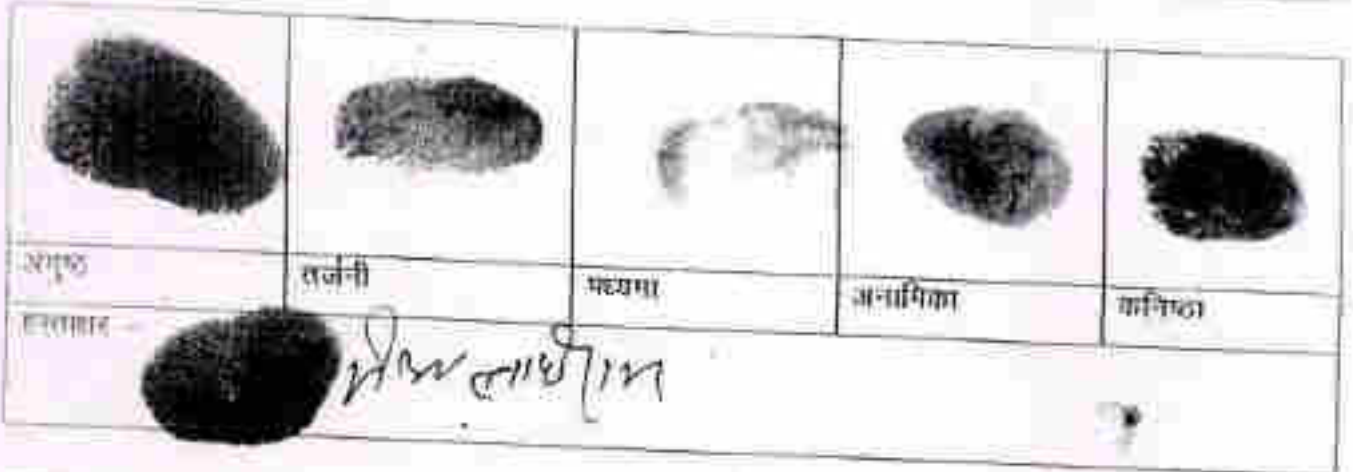 अंगुष्ठ तर्जनी मध्यमा अनामिका कनिष्ठा
हस्ताक्षर